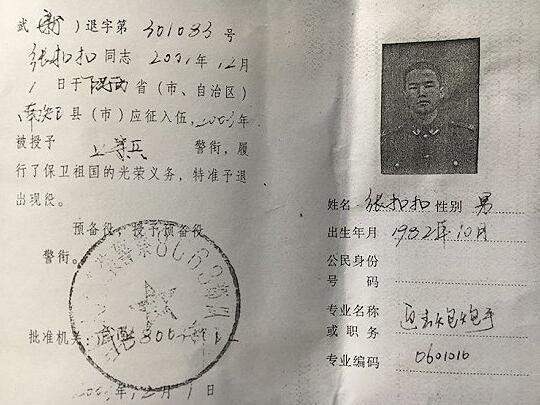 武(新)退字第301083号
张扣扣同志2001年12月
1日于陕西省(市、自治区)
南郑县(市)应征入伍,2003年
被授予上等兵警衔,履
行了保卫祖国的光荣义务,特准予退
出现役。
预备役:授予预备役
警衔。
批准机关:
2003年12月1日
姓名 张扣扣 性别 男
出生年月 1982年10月
公民身份
号码
专业名称
或职务 迫击炮炮手
专业编码 0601010
8063